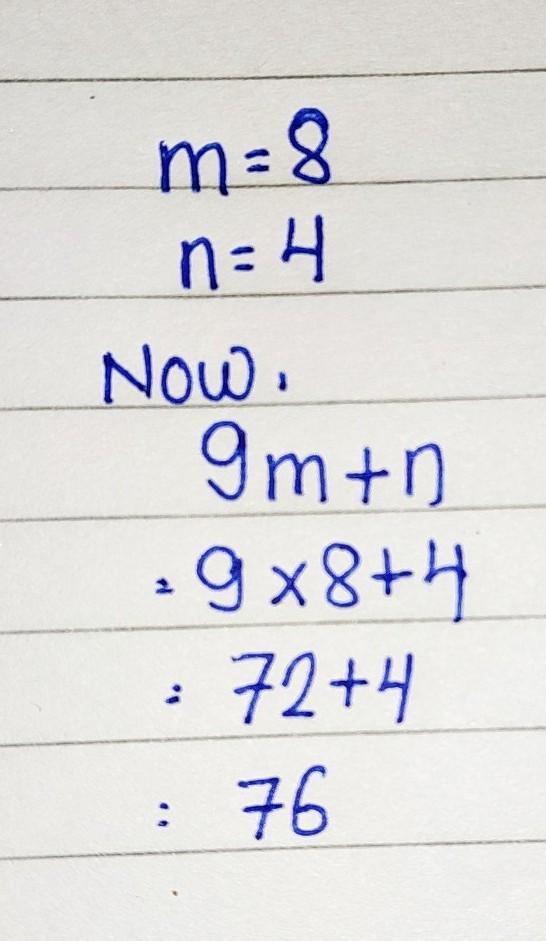 m=8
n=4
Now,
9m+n
=9×8+4
=72+4
=76